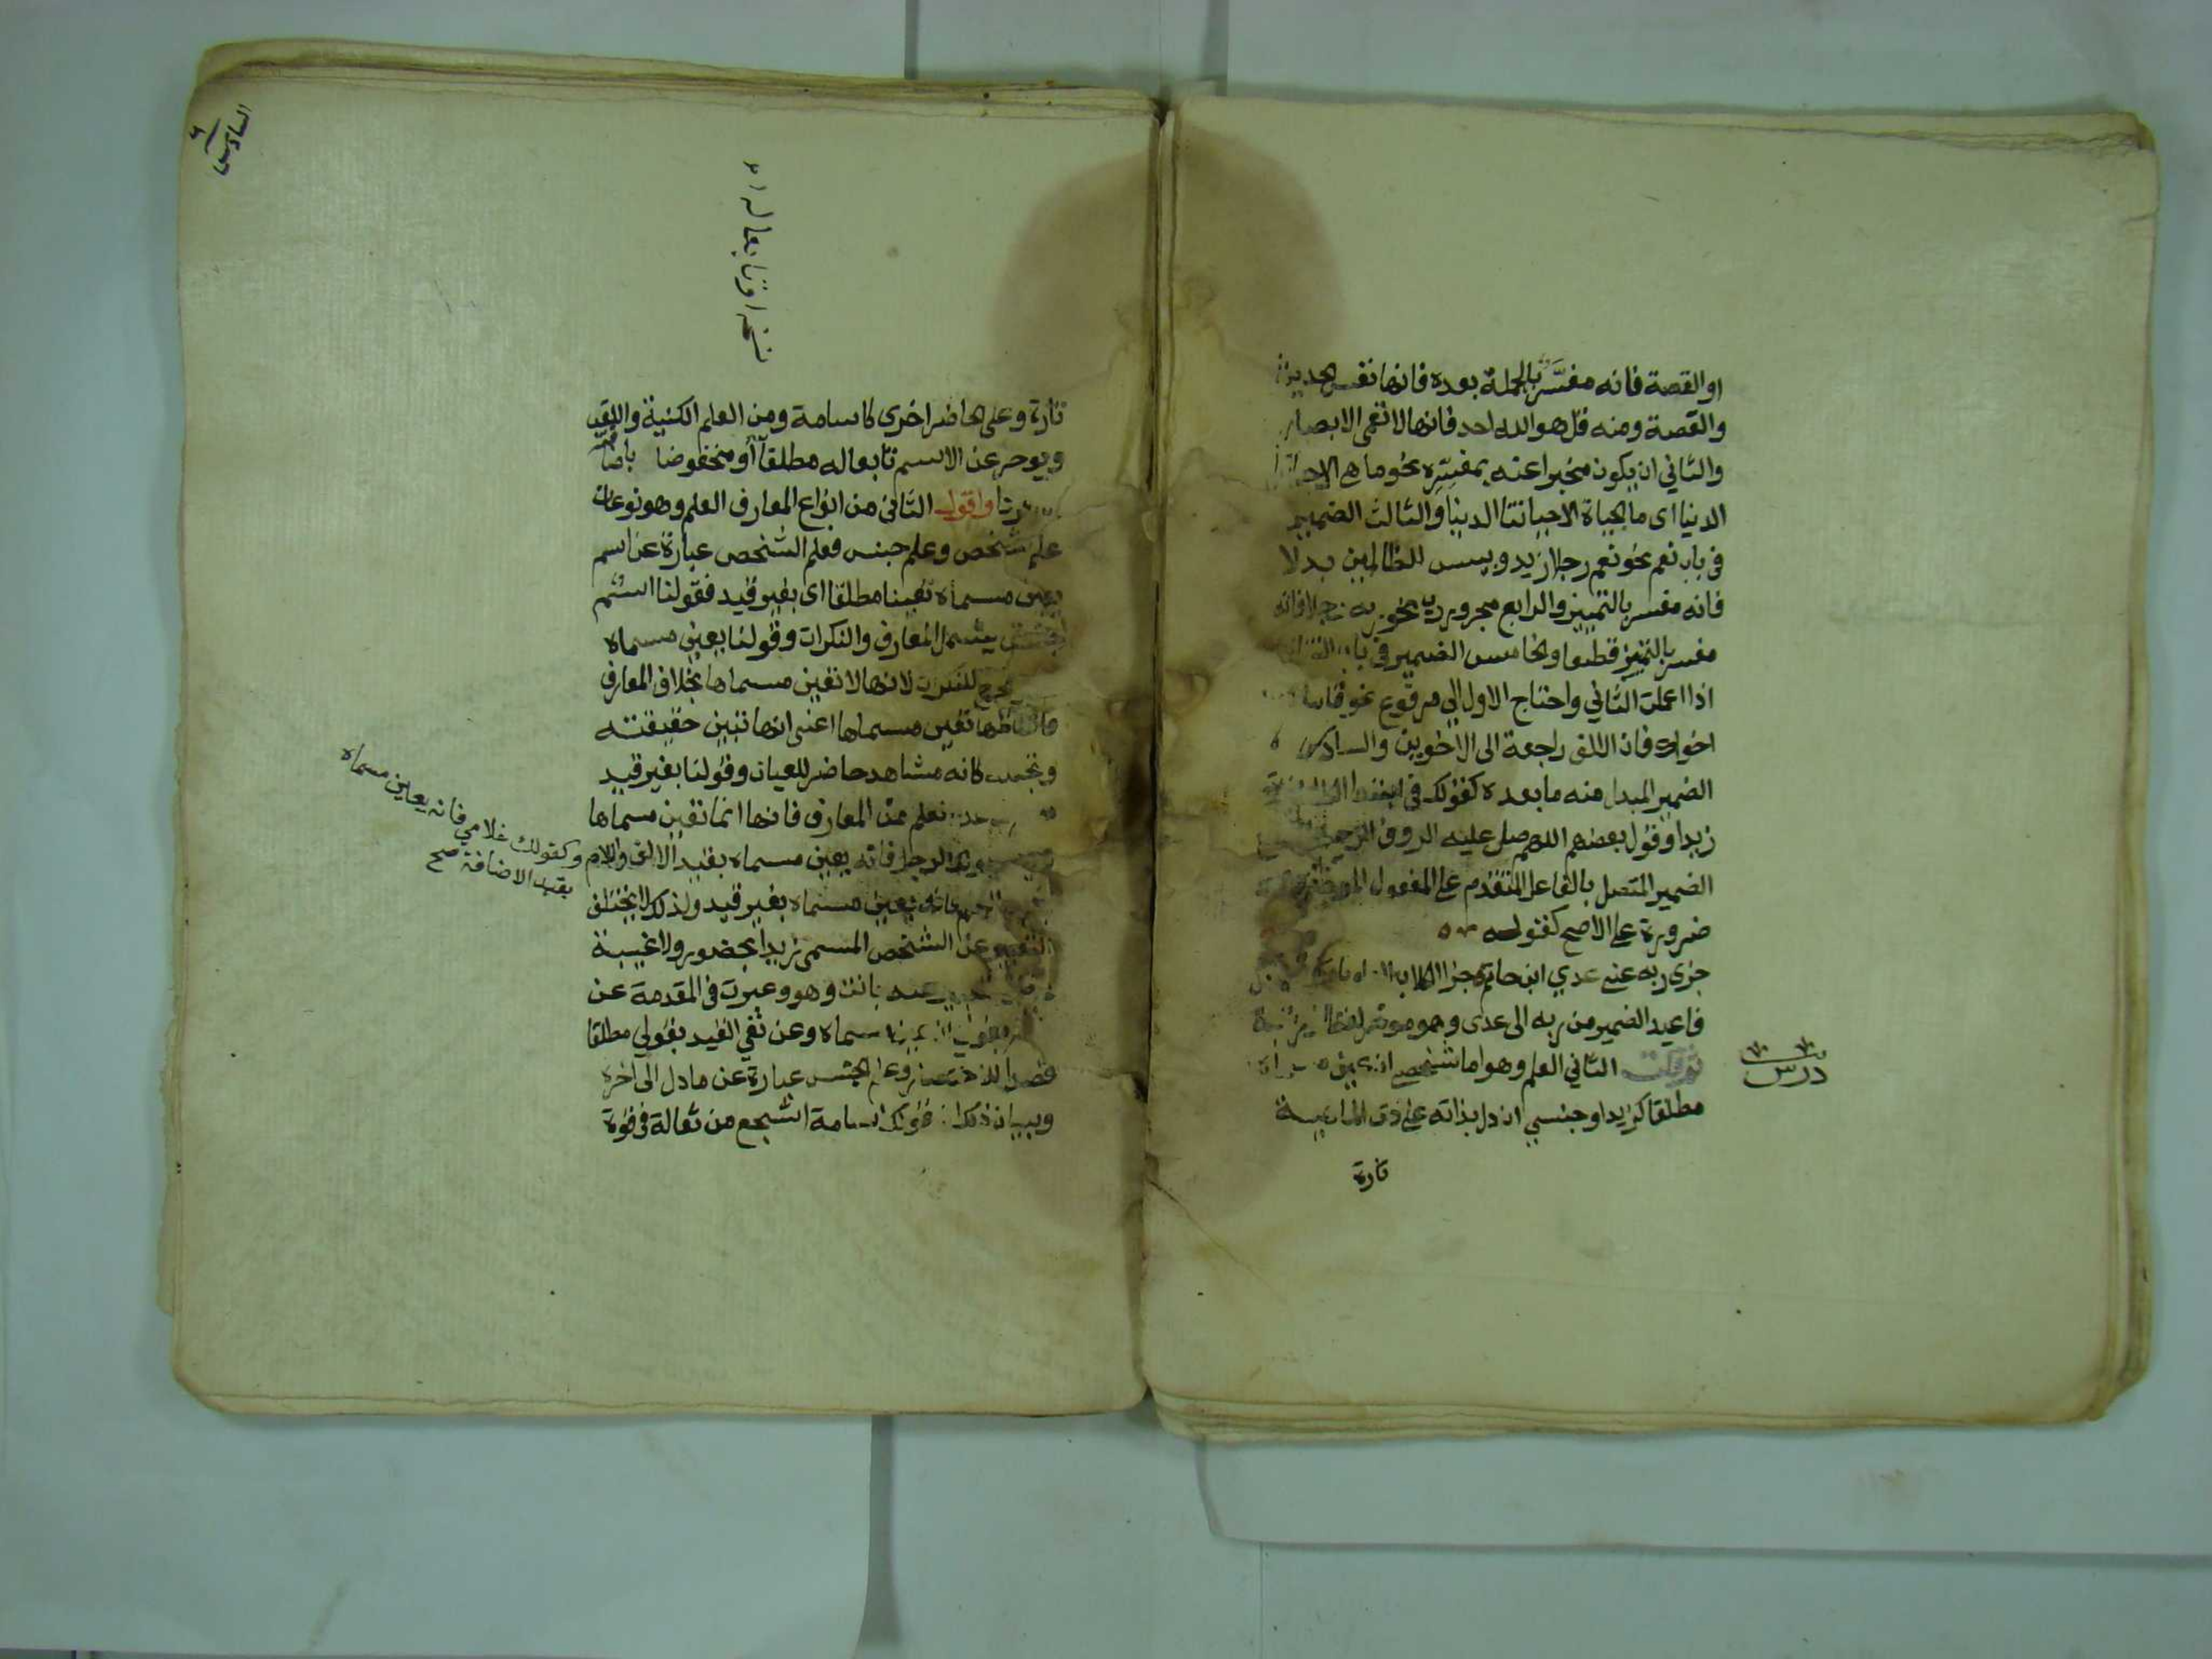 او القصة فانه مفسر بالجملة بعده فانها نفس الحديث
والقصة ومنه قل هو الله احد فانها لا تعمى الابصار
والثاني ان يكون مخبرا عنه بمفسره نحو ما هي الا حياتنا
الدنيا اى ما الحياة الا حياتنا الدنيا والثالث الضمير
فى باب نعم نحو نعم رجلا زيد وبيس للظالمين بدلا
فانه مفسر بالتمييز والرابع مجرور رب نحو ربه رجلا فانه
مفسر بالتمييز قطعا والخامس الضمير فى باب التنازع
اذا اعملت الثاني واحتاج الاول الى مرفوع نحو قاما
اخواك فان الالف راجعة الى الاخوين والسادس
الضمير المبدل منه ما بعده كقولك فى
زيدا وقول بعضهم اللهم صل عليه الروف الرحيم
الضمير المتصل بالفاعل المتقدم على المفعول الموخر
ضرورة على الاصح كقوله
جزى ربه عنى عدي ابن حاتم جزا الكلاب
فاعيد الضمير من ربه الى عدى وهو موخر لفظا ورتبة
ثم قلت الثاني العلم وهو اما شخصي ان عين مسماه
مطلقا كزيد او جنسي ان دل بذاته على ذى الماهية
تارة
درس
السادس
٦
نسخة او تابعا له
تارة وعلى الحاضر اخرى كاسامة ومن العلم الكنية واللقب
ويوخر عن الاسم تابعا له مطلقا أو مخفوضا باضافته
واقول الثانى من انواع المعارف العلم وهو نوعان
علم شخص وعلم جنس فعلم الشخص عبارة عن اسم
يعين مسماه تعيينا مطلقا اى بغير قيد فقولنا اسم
جنس يشمل المعارف والنكرات وقولنا يعين مسماه
مخرج للنكرات لانها لا تعين مسماها بخلاف المعارف
فانها كلها تعين مسماها اعنى انها تبين حقيقته
وتجعله كانه مشاهد حاضر للعيان وقولنا بغير قيد
العلم من المعارف فانها انما تعين مسماها
الرجل فانه يعين مسماه بقيد الالف واللام
وكقولك غلامي فانه يعين مسماه
بقيد الاضافة صح
فانه يعين مسماه بغير قيد ولذلك لا يختلف
التعبير عن الشخص المسمى زيدا بحضور ولا غيبة
عنه بانت وهو وعبرت فى المقدمة عن
مسماه وعن نفي القيد بقولي مطلقا
قصدا للاختصار وعلم الجنس عبارة عن ما دل الى اخره
وبيان ذلك ان قولك اسامة اشجع من ثعالة فى قوة